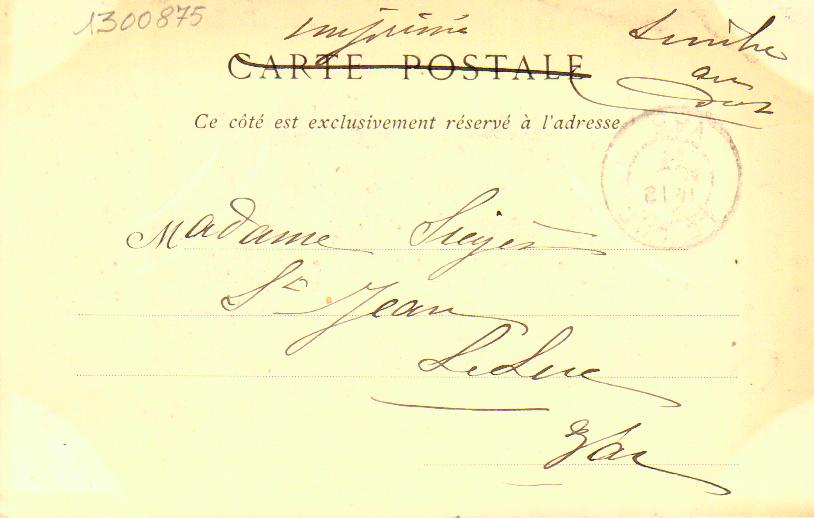 1300875
imprimé
Timbre
au
dos
CARTE POSTALE
Ce côté est exclusivement réservé à l'adresse
Madame Sieyès
St Jean
Le Luc
Var